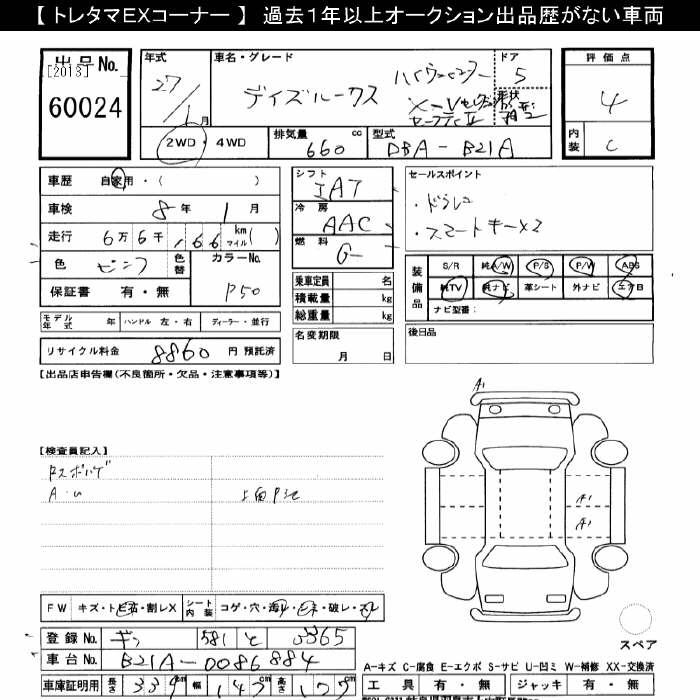 【 トレタマEXコーナー 】 過去1年以上オークション出品歴がない車両
出品No.
[2013]
60024
年式
27/1月
車名・グレード
デイズルークス
ハイウェイスター
X-Vセレクション
セーフティII
ドア
5
形状
評価点
4
内装
C
2WD・4WD
排気量 660 cc
型式 DBA-B21A
車歴 自家用・( )
車検 8年 1月
走行 6万6千166 km マイル( )
色 ピンク
色替
カラーNo.
P50
保証書 有・無
シフト
IAT
冷房
AAC
燃料
G
乗車定員 名
積載量 kg
総重量 kg
セールスポイント
・ドラレコ
・スマートキー×2
装備品
S/R 純A/W P/S P/W ABS
純TV 純ナビ 革シート 外ナビ エアB
ナビ型番:
モデル年式 年 ハンドル 左・右 ディーラー・並行
名変期限
月 日
後日品
リサイクル料金 8860 円 預託済
【出品店申告欄(不良箇所・欠品・注意事項等)】
A1
【検査員記入】
A・U
A1
A1
FW キズ・トビ石・割レX シート内装 コゲ・穴・汚レ・キズ・破レ・スレ
スペア
登録No. 581 と 3365
車台No. B21A-0086884
A-キズ C-腐食 E-エクボ S-サビ U-凹ミ W-補修 XX-交換済
車庫証明用 長さ 339cm 幅 147cm 高さ 177
工具 有・無 ジャッキ 有・無